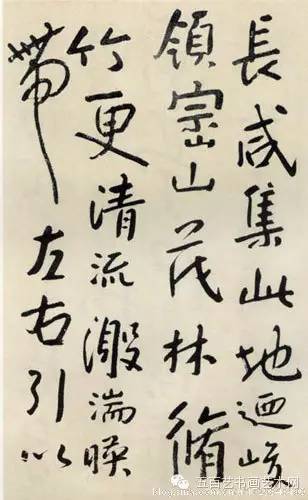 長咸集此地迺峻
領崇山茂林脩
竹更清流激湍暎
帶左右引以
五百艺书画艺术网